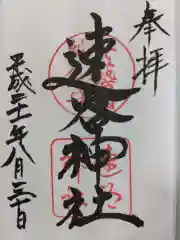 奉拝
速谷神社
平成二十一年八月三十日